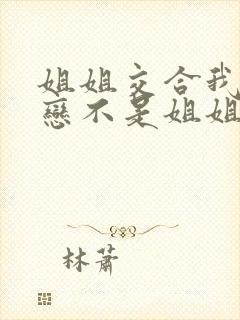 姐姐交合我
戀不是姐姐
林蕭